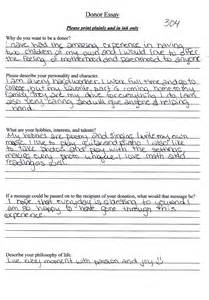 Donor Essay
304
Please print plainly and in ink only
Why do you want to be a donor?
I have had the amazing experience in having
two children of my own and I would love to offer
the feeling of motherhood and parenthood to anyone
Please describe your personality and character.
I am a very hard worker. I work full time and go to
college, but my favorite part is coming home to my
family. They are my drive for everything I do. I am
also very caring and will give anyone a helping
hand.
What are your hobbies, interests, and talents?
My hobbies are poetry and singing. I write my own
music. I love to play guitar and piano. I also love
to take photos and play with the settings
making every photo unique. I love math and
reading as well.
If a message could be passed to the recipient of your donation, what would that message be?
I hope that everyday is a blessing to you. I am
so happy to have gone through this
experience.
What is your philosophy of life?
Live every moment with passion and joy